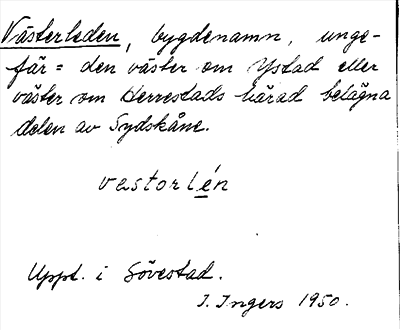 Västerleden, bygdenamn, unge-
fär = den väster om Ystad eller
väster om Herrestads härad belägna
delen av Sydskåne.
vastorlén
Uppt. i Sövestad.
I. Ingers 1950.